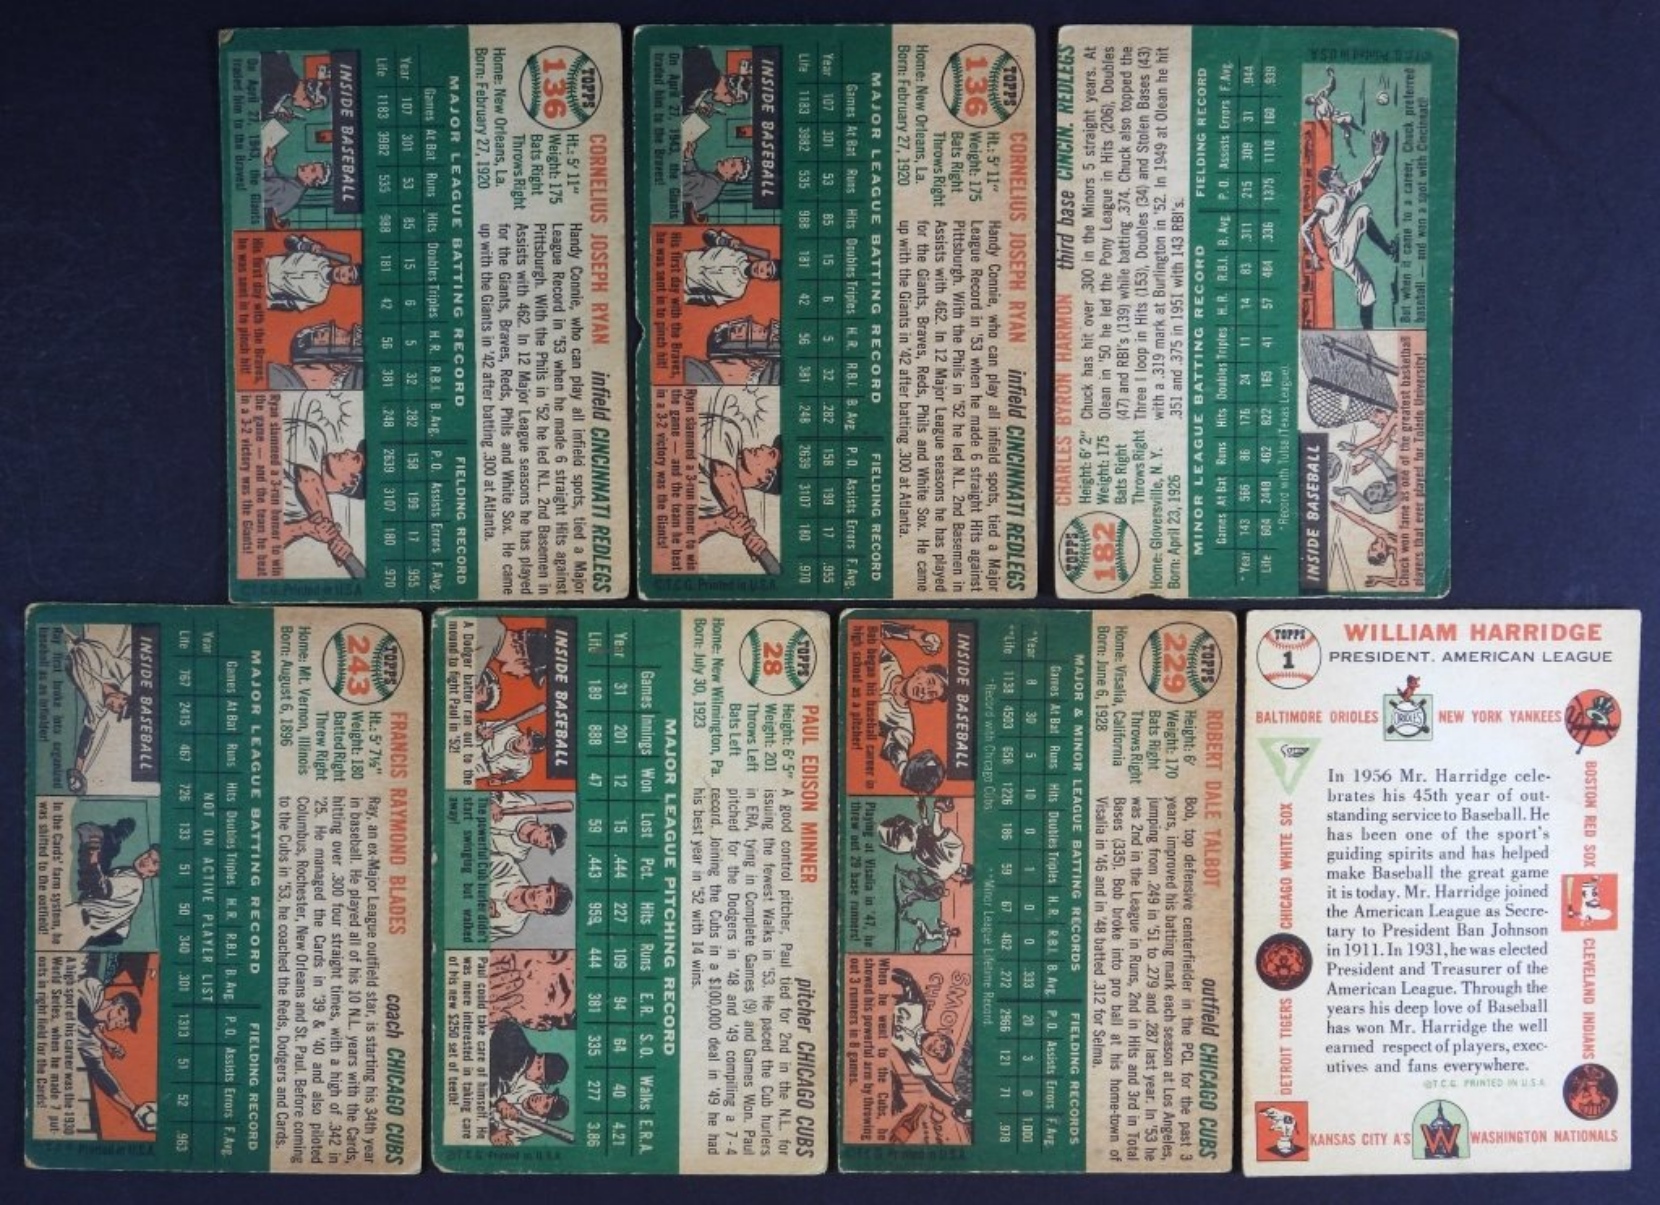 TOPPS
136
CORNELIUS JOSEPH RYAN
infield CINCINNATI REDLEGS
Ht.: 5' 11"
Weight: 175
Bats Right
Throws Right
Home: New Orleans, La.
Born: February 27, 1920
Handy Connie, who can play all infield spots, tied a Major
League Record in '53 when he made 6 straight Hits against
Pittsburgh. With the Phils in '52 he led N.L. 2nd Basemen in
Assists with 462. In 12 Major League seasons he has played
for the Giants, Braves, Reds, Phils and White Sox. He came
up with the Giants in '42 after batting .300 at Atlanta.
MAJOR LEAGUE BATTING RECORD FIELDING RECORD
Games At Bat Runs Hits Doubles Triples H.R. R.B.I. B.Avg. P.O. Assists Errors F.Avg.
Year 107 301 53 85 15 6 5 32 .282 158 199 17 .955
Life 1183 3982 535 988 181 42 56 381 .248 2639 3107 180 .970
INSIDE BASEBALL
On April 27, 1943, the Giants
traded him to the Braves!
His first day with the Braves,
he was sent in to pinch hit!
Ryan slammed a 3-run homer to win
the game — and the team he beat
in a 3-2 victory was the Giants!
©T.C.G. Printed in U.S.A.
TOPPS
136
CORNELIUS JOSEPH RYAN
infield CINCINNATI REDLEGS
Ht.: 5' 11"
Weight: 175
Bats Right
Throws Right
Home: New Orleans, La.
Born: February 27, 1920
Handy Connie, who can play all infield spots, tied a Major
League Record in '53 when he made 6 straight Hits against
Pittsburgh. With the Phils in '52 he led N.L. 2nd Basemen in
Assists with 462. In 12 Major League seasons he has played
for the Giants, Braves, Reds, Phils and White Sox. He came
up with the Giants in '42 after batting .300 at Atlanta.
MAJOR LEAGUE BATTING RECORD FIELDING RECORD
Games At Bat Runs Hits Doubles Triples H.R. R.B.I. B.Avg. P.O. Assists Errors F.Avg.
Year 107 301 53 85 15 6 5 32 .282 158 199 17 .955
Life 1183 3982 535 988 181 42 56 381 .248 2639 3107 180 .970
INSIDE BASEBALL
On April 27, 1943, the Giants
traded him to the Braves!
His first day with the Braves,
he was sent in to pinch hit!
Ryan slammed a 3-run homer to win
the game — and the team he beat
in a 3-2 victory was the Giants!
©T.C.G. Printed in U.S.A.
TOPPS
182
CHARLES BYRON HARMON
third base CINCIN. REDLEGS
Height: 6' 2"
Weight: 175
Bats Right
Throws Right
Home: Gloversville, N. Y.
Born: April 23, 1926
Chuck has hit over .300 in the Minors 5 straight years. At
Olean in '50, he led the Pony League in Hits (206), Doubles
(47) and RBI's (139) while batting .374. Chuck also topped the
Three I loop in Hits (153), Doubles (34) and Stolen Bases (43)
with a .319 mark at Burlington in '52. In 1949 at Olean he hit
.351 and .375 in 1951 with 143 RBI's.
MINOR LEAGUE BATTING RECORD FIELDING RECORD
Games At Bat Runs Hits Doubles Triples H.R. R.B.I. B.Avg. P.O. Assists Errors F.Avg.
*Year 143 566 86 176 24 11 14 83 .311 215 309 31 .944
Life 604 2448 462 822 165 41 57 484 .336 1375 1110 160 .939
*Record with Tulsa (Texas League).
INSIDE BASEBALL
Chuck won fame as one of the greatest basketball
players that ever played for Toledo University!
But when it came to a career, Chuck preferred
baseball — and won a spot with Cincinnati!
©T.C.G. Printed in U.S.A.
TOPPS
243
FRANCIS RAYMOND BLADES
coach CHICAGO CUBS
Ht.: 5' 7½"
Weight: 180
Batted Right
Threw Right
Home: Mt. Vernon, Illinois
Born: August 6, 1896
Ray, an ex-Major League outfield star, is starting his 34th year
in baseball. He played all of his 10 N.L. years with the Cards,
hitting over .300 four straight times, with a high of .342 in
'25. He managed the Cards in '39 & '40 and also piloted
Columbus, Rochester, New Orleans and St. Paul. Before coming
to the Cubs in '53, he coached the Reds, Dodgers and Cards.
MAJOR LEAGUE BATTING RECORD FIELDING RECORD
Games At Bat Runs Hits Doubles Triples H.R. R.B.I. B.Avg. P.O. Assists Errors F.Avg.
Year NOT ON ACTIVE PLAYER LIST
Life 767 2415 467 726 133 51 50 340 .301 1313 51 52 .963
INSIDE BASEBALL
Ray first broke into organized
baseball as an infielder!
In the Cards' farm system, he
was shifted to the outfield!
A high spot of his career was the 1930
World Series, when he made 7 put-
outs in right field for the Cards!
TOPPS
28
PAUL EDISON MINNER
pitcher CHICAGO CUBS
Height: 6' 5"
Weight: 201
Throws Left
Bats Left
Home: New Wilmington, Pa.
Born: July 30, 1923
A good control pitcher, Paul tied for 2nd in the N.L. for
issuing the fewest Walks in '53. He paced the Cub hurlers
in ERA, tying in Complete Games (9) and Games Won. Paul
pitched for the Dodgers in '48 and '49 compiling a 7-4
record. Joining the Cubs in a $100,000 deal in '49 he had
his best year in '52 with 14 wins.
MAJOR LEAGUE PITCHING RECORD
Games Innings Won Lost Pct. Hits Runs E.R. S.O. Walks E.R.A.
Year 31 201 12 15 .444 227 109 94 64 40 4.21
Life 189 888 47 59 .443 959 444 381 335 277 3.86
INSIDE BASEBALL
A Dodger batter ran out to the
mound to fight Paul in '52!
The powerful Cub hurler didn't
start swinging but walked
away!
Paul could take care of himself. He
was more interested in taking care
of his new $250 set of teeth!
©T.C.G. Printed in U.S.A.
TOPPS
229
ROBERT DALE TALBOT
outfield CHICAGO CUBS
Height: 6'
Weight: 170
Bats Right
Throws Right
Home: Visalia, California
Born: June 6, 1928
Bob, top defensive centerfielder in the PCL for the past 3
years, improved his batting mark each season at Los Angeles,
jumping from .249 in '51 to .279 and .287 last year. In '53 he
was 2nd in the League in Runs, 2nd in Hits and 3rd in Total
Bases (335). Bob broke into pro ball at his home-town of
Visalia in '46 and in '48 batted .312 for Selma.
MAJOR & MINOR LEAGUE BATTING RECORDS FIELDING RECORDS
Games At Bat Runs Hits Doubles Triples H.R. R.B.I. B.Avg. P.O. Assists Errors F.Avg.
*Year 8 30 5 10 0 1 0 0 .333 20 3 0 1.000
**Life 1138 4503 658 1226 186 59 67 462 .272 2966 121 71 .978
*Record with Chicago Cubs. **Minor League Lifetime Record.
INSIDE BASEBALL
Bob began his baseball career in
high school as a pitcher!
Playing at Visalia in '47, he
threw out 29 base runners!
When he went to the Cubs, he
showed his powerful arm by throwing
out 3 runners in 8 games.
©T.C.G. Printed in U.S.A.
TOPPS
1
WILLIAM HARRIDGE
PRESIDENT, AMERICAN LEAGUE
BALTIMORE ORIOLES
ORIOLES
NEW YORK YANKEES
BOSTON RED SOX
CLEVELAND INDIANS
WASHINGTON NATIONALS
W
KANSAS CITY A'S
DETROIT TIGERS
CHICAGO WHITE SOX
In 1956 Mr. Harridge cele-
brates his 45th year of out-
standing service to Baseball. He
has been one of the sport's
guiding spirits and has helped
make Baseball the great game
it is today. Mr. Harridge joined
the American League as Secre-
tary to President Ban Johnson
in 1911. In 1931, he was elected
President and Treasurer of the
American League. Through the
years his deep love of Baseball
has won Mr. Harridge the well
earned respect of players, exec-
utives and fans everywhere.
©T.C.G. PRINTED IN U.S.A.